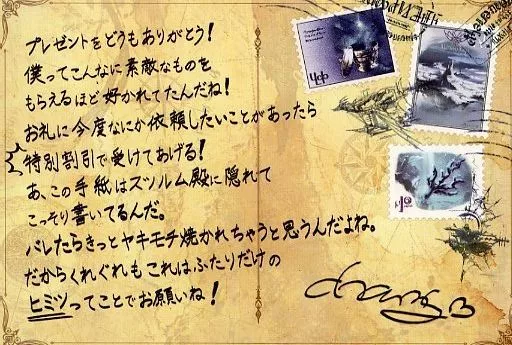 プレゼントをどうもありがとう!
僕ってこんなに素敵なものを
もらえるほど好かれてたんだね!
お礼に今度なにか依頼したいことがあったら
特別割引で受けてあげる!
あ、この手紙はズヅルム殿に隠れて
こっそり書いてるんだ。
バレたらきっとヤキモチ焼かれちゃうと思うんだよね。
だからくれぐれもこれはふたりだけの
ヒミツってことでお願いね!